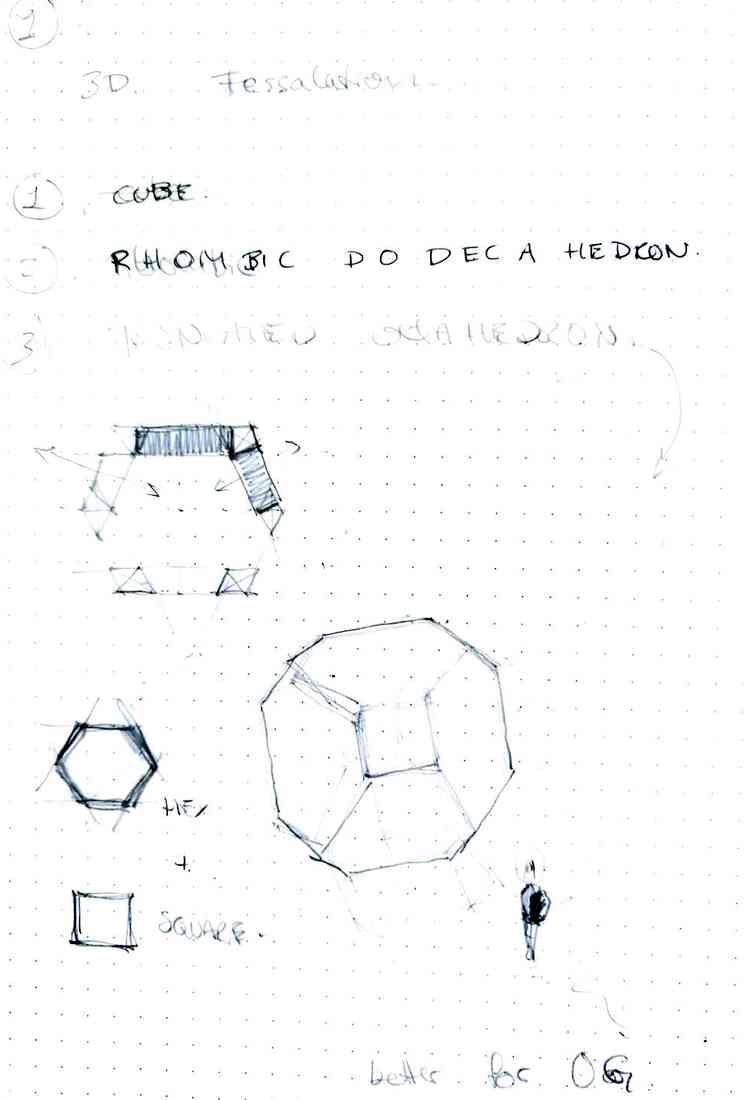 2
3D. Tessalation.
① CUBE.
② RHOMBIC DODECAHEDRON.
3 OCTAHEDRON.
HEX
+
SQUARE.
better for OG